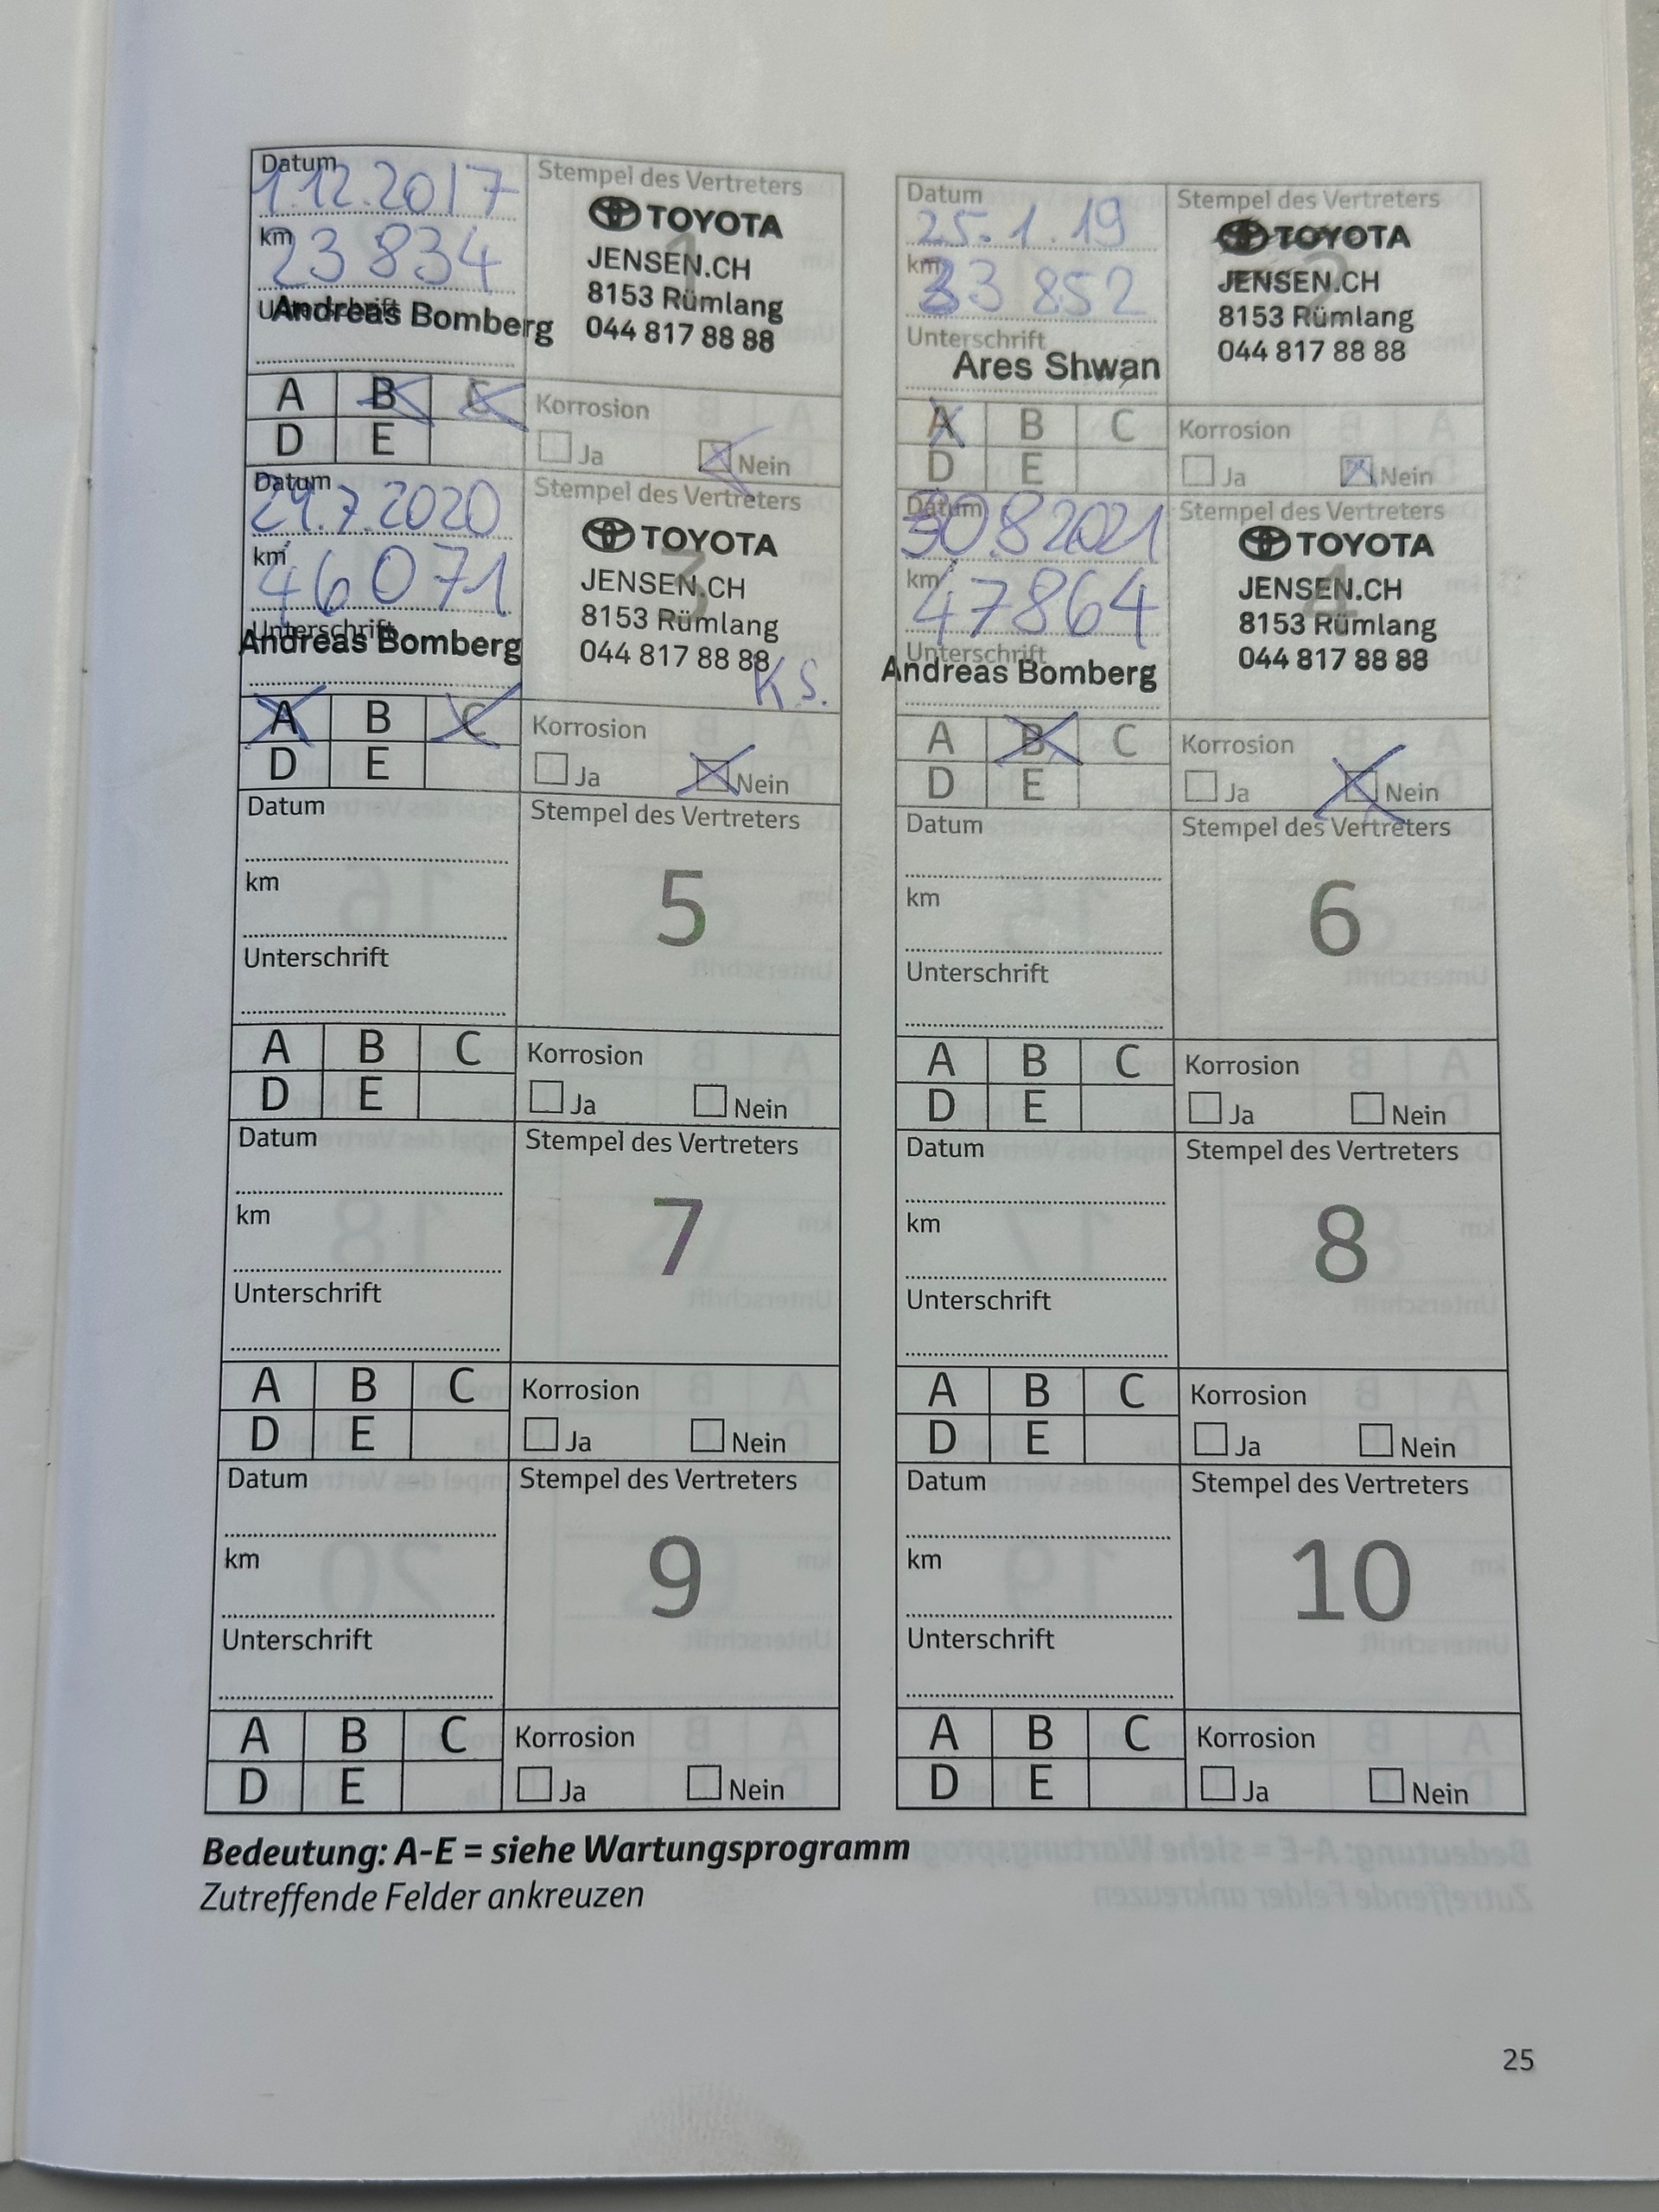 Datum
1.12.2017
km
23 834
Unterschrift
Andreas Bomberg
Stempel des Vertreters
1
TOYOTA
JENSEN.CH
8153 Rümlang
044 817 88 88
A B C
D E
Korrosion
Ja Nein
Datum
25.1.19
km
33 852
Unterschrift
Ares Shwan
Stempel des Vertreters
2
TOYOTA
JENSEN.CH
8153 Rümlang
044 817 88 88
A B C
D E
Korrosion
Ja Nein
Datum
29.7.2020
km
46 071
Unterschrift
Andreas Bomberg
Stempel des Vertreters
3
TOYOTA
JENSEN.CH
8153 Rümlang
044 817 88 88
K S.
A B C
D E
Korrosion
Ja Nein
Datum
30.8 2021
km
47864
Unterschrift
Andreas Bomberg
Stempel des Vertreters
4
TOYOTA
JENSEN.CH
8153 Rümlang
044 817 88 88
A B C
D E
Korrosion
Ja Nein
Datum
km
Unterschrift
Stempel des Vertreters
5
A B C
D E
Korrosion
Ja Nein
Datum
km
Unterschrift
Stempel des Vertreters
6
A B C
D E
Korrosion
Ja Nein
Datum
km
Unterschrift
Stempel des Vertreters
7
A B C
D E
Korrosion
Ja Nein
Datum
km
Unterschrift
Stempel des Vertreters
8
A B C
D E
Korrosion
Ja Nein
Datum
km
Unterschrift
Stempel des Vertreters
9
A B C
D E
Korrosion
Ja Nein
Datum
km
Unterschrift
Stempel des Vertreters
10
A B C
D E
Korrosion
Ja Nein
Bedeutung: A-E = siehe Wartungsprogramm
Zutreffende Felder ankreuzen
25